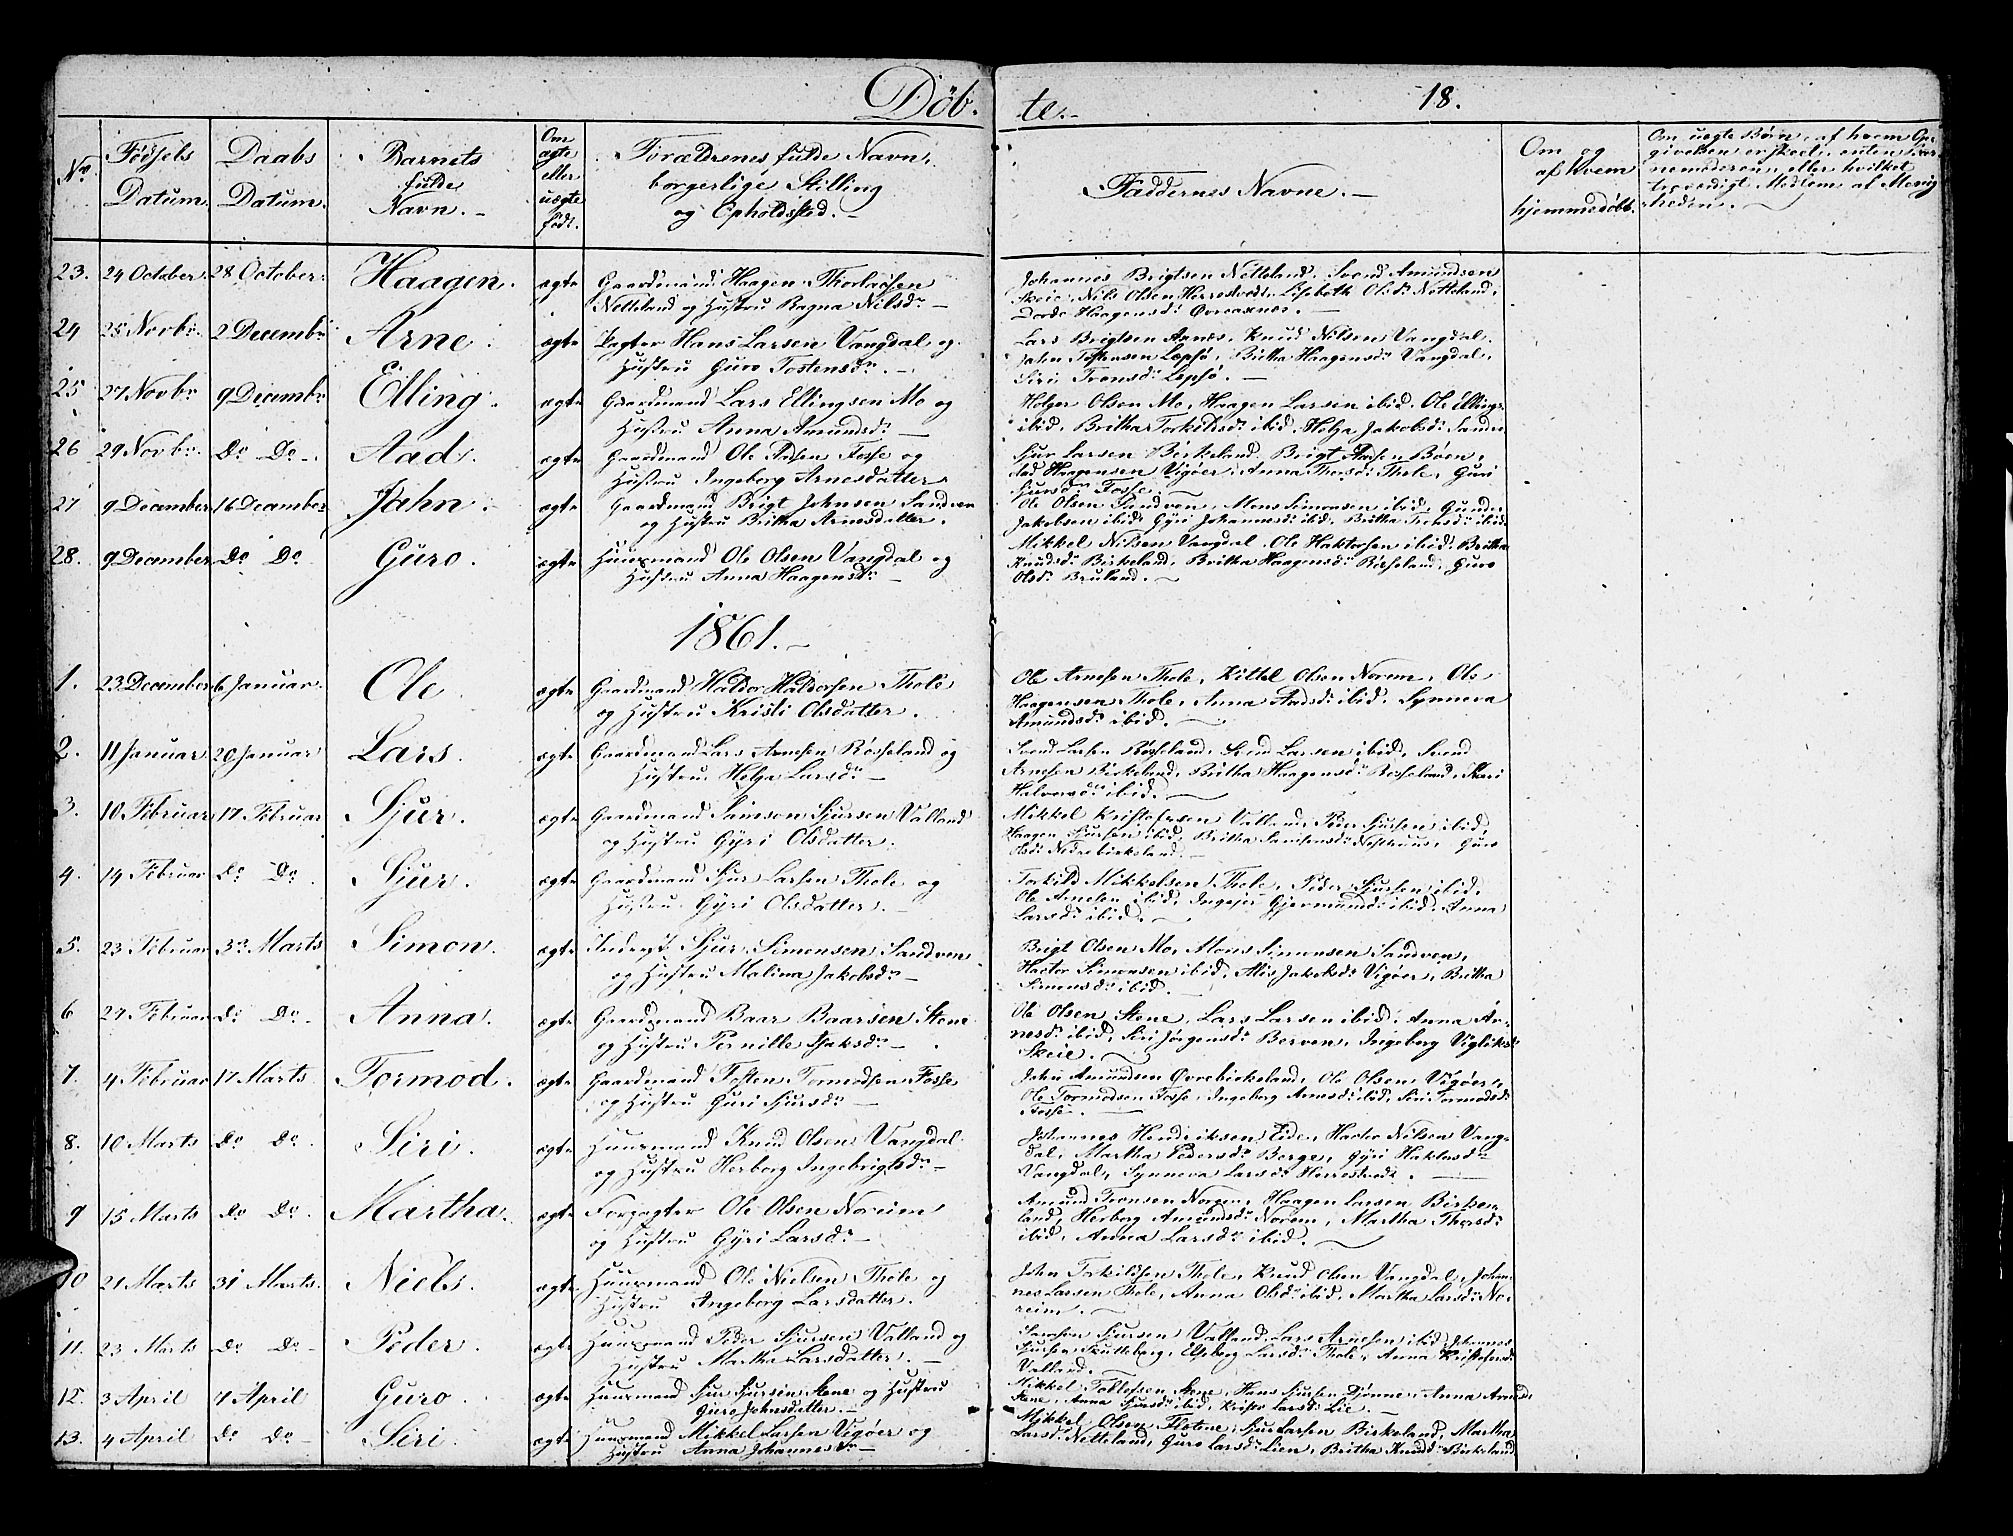 Döb-
te.-
18.
No
Födsels
Datum.
Daabs
Datum.
Barnets
fulde
Navn.-
Om
ægte
eller
uægte
født.
Forældrenes fulde Navn,
borgerlige Stilling
og Opholdssted.-
Faddernes Navne.-
Om og
af hvem
hjemmedöbt.
Om uegte Børn, af hvem Op-
givelsen er skeet, enten Bar-
nemoderen, eller hvilket
troværdigt Medlem af Menig
heden.
23. 24 October. 28 October. Haagen. ægte Gaardmand Haagen Thorlaksen
Netteland og Hustru Ragna Nilsdr -
Johannes Brigtsen Netteland, Svend Amundsen
Skeie, Nils Olsen Herrestvedt, Lisebeth Olsdr Netteland,
Dorde Haagensdr Övreaxnes.
24 25 Novbr. 2 Decembr Arne ægte Pagter Hans Larsen Vangdal og
Hustru Guro Tostensdr.-
Lars Brigtsen Axnes, Knud Nilsen Vangdal,
John Tostensen Lepsö, Britha Haagensdr Vangdal,
Siri Tronsdr Lepsö.-
25 27 Novbr 9 Decembr Elling. ægte Gaardmand Lars Ellingsen Mo og
Hustru Anna Amundsdr -
Holger Olsen Mo, Haagen Larsen ibid. Ole Ellings.
ibid, Britha Torkildsdr ibid. Helga Jakobsdr Sandv.
26 29 Novbr. Do Do-. Aad. ægte Gaardmand Ole Adsen Fosse og
Hustru Ingeborg Arnesdatter
Sjur Larsen Birkeland, Brigt Aadsen Böen,
Aad Haagensen Vigöer, Anna Thorsdr Thole, Guri
Sjursdr Fosse.
27 9 December 16 December John. ægte Gaardmand Brigt Johnsen Sandven
og Hustru Britha Arnesdatter.
Ole Olsen Sandven, Mons Simonsen ibid, Gunder
Jakobsen ibid Gyri Johannesdr ibid, Britha Tronsdr ibid.
28. 9 December Do Do Guro. ægte Huusmand Ole Olsen Vangdal og
Hustru Anna Haagensdr -
Mikkel Nilsen Vangdal, Ole Haktorsen ibid. Britha
Knudsdr Birkeland, Britha Haagensdr Rösseland, Guro
Olsdr Bruland.
1861.-
1. 23 December 6 Januar. Ole. ægte Gaardmand Haldor Haldorsen Thole
og Hustru Kristi Olsdatter.
Ole Arnesen Thole, Kittel Olsen Norem, Ole
Haagensen Thole, Anna Aadsdr ibid. Synneva
Amundsdr ibid.
2. 11 Januar 20 Januar Lars. ægte Gaardmand Lars Arnesen Rösseland og
Hustru Helga Larsdr -
Svend Larsen Rösseland, Svend Larsen ibid, Svend
Arnesen Birkeland, Britha Haagensdr Rosseland, Kari
Halvorsdr ibid.
3. 10 Februar 17 Februar Sjur. ægte Gaardmand Samson Sjursen Valland
og Hustru Gyri Olsdatter.
Mikkel Kristofersen Valland, Peder Sjursen ibid,
Haagen Sjursen ibid, Britha Samsonsdr Nestruus, Guro
Olsdr Nedrebirkeland.
4. 14 Februar Do Do. Sjur. ægte Gaardmand Sjur Larsen Thole og
Hustru Gyri Olsdatter.-
Torkild Mikkelsen Thole, Peder Sjursen ibid,
Ole Arnesen ibid, Ingeju Gjermundsdr ibid. Anna
Larsdr ibid.
5. 23 Februar 3d Marts Simon. ægte Inderst Sjur Simonsen Sandven
og Hustru Malina Jakobsdr -
Brigt Olsen Mo, Mons Simonsen Sandven,
Hactor Simonsen ibid, Alis Jakobsdr Vigöer, Britha
Simonsdr ibid.
6 27 Februar Do Do- Anna. ægte Gaardmand Baar Baarsen Stene
og Hustru Pernille Isaksdr -
Ole Olsen Stene, Lars Larsen ibid, Anna Ar-
nesdr ibid, Siri Jörgensdr Berven, Ingeborg Vigliksdr
Skeie.
7. 4 Februar 17 Marts Tormod. ægte Gaardmand Tosten Tormodsen Fosse
og Hustru Guri Sjursdr -
John Amundsen Övrebirkeland, Ole Olsen Vigöer,
Ole Tormodsen Fosse, Ingeborg Arnesdr ibid, Siri Tormodsdr
Fosse.
8. 10 Marts Do Do. Siri. ægte Huusmand Knud Olsen Vangdal
og Hustru Herborg Ingebrigtsdr -
Johannes Hendriksen Eide, Hactor Nilsen Vang-
dal, Martha Pedersdr Berge, Gyri Haktorsdr
Vangdal, Synneva Larsdr Herrestvedt.-
9 15 Marts Do Do. Martha. ægte Forpagter Ole Olsen Noreim
og Hustru Gyri Larsdr -
Amund Tronsen Norem, Haagen Larsen Birke-
land, Herborg Amundsdr Norem, Martha Thorsdr
ibid, Anna Larsdr ibid.
10 21 Marts 31 Marts. Niels. ægte Huusmand Ole Nielsen Thole og
Hustru Angeborg Larsdatter.
John Torkildsen Thole, Knud Olsen Vangdal, Johan-
nes Larsen Thole, Anna Olsdr ibid. Martha Larsdr No-
reim.
11. 23 Marts Do Do- Peder. ægte Huusmand Peder Sjursen Valland og
Hustru Martha Larsdatter.-
Samson Sjursen Valland, Lars Arnesen ibid, Johannes
Sjursen Skutteberg, Elsborg Larsdr Thole, Anna Kristofersdr
Valland.
12. 3 April 7 April Guro. ægte Huusmand Sjur Sjursen Stene og Hustru
Guro Johnsdatter.-
Mikkel Tollefsen Stene, Hans Sjursen Djönne, Anna Arnesdr
Stene, Anna Sjursdr ibid, Kristi Larsdr Lie.-
13. 4 April Do Do- Siri. ægte Huusmand Mikkel Larsen Vigöer og
Hustru Anna Johannesdr -
Mikkel Olsen Flotene, Sjur Larsen Birkeland, Martha
Larsdr Netteland, Guro Larsdr Lien, Britha Knudsdr Birkeland